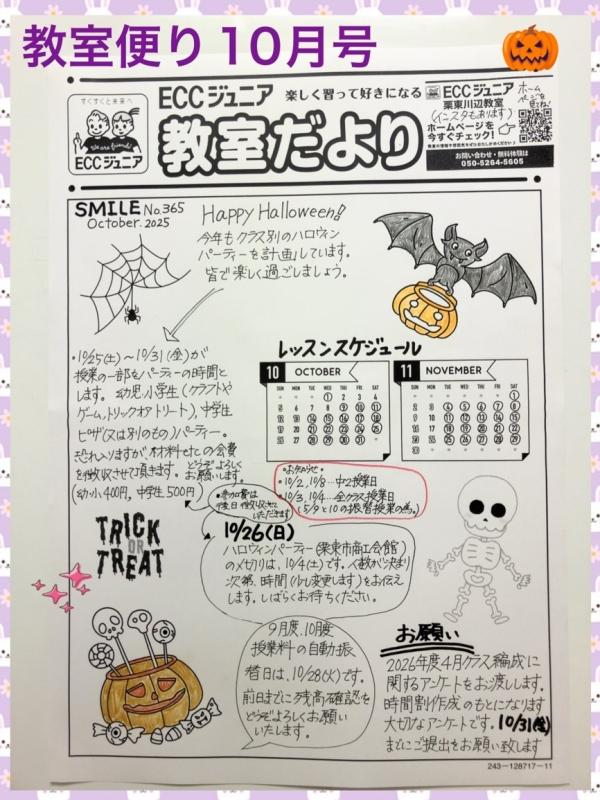 教室便り 10月号
すくすくと未来へ
We are friends!
ECCジュニア
ECCジュニア 楽しく習って好きになる
教室だより
ECCジュニア
栗東川辺教室
(インスタもあります)
ホームページを
今すぐチェック!
ホーム
ページを
見てね!
お問い合わせ・無料体験は
050-5264-5605
SMILE No.365
October. 2025
Happy Halloween!
今年もクラス別のハロウィン
パーティーを計画しています。
皆で楽しく過ごしましょう。
・10/25(土)〜10/31(金)が
授業の一部をパーティーの時間と
します。幼児、小学生(クラフトや
ゲーム、トリックオアトリート)、中学生
ピザ(又は別のもの)パーティー。
恐れ入りますが材料その他の会費
を徴収させて頂きます。どうぞよろしく
お願いします。
(幼・小 400円, 中学生 500円)
レッスンスケジュール
10 OCTOBER
SUN MON TUE WED THU FRI SAT
1 2 3 4
5 6 7 8 9 10 11
12 13 14 15 16 17 18
19 20 21 22 23 24 25
26 27 28 29 30 31
11 NOVEMBER
SUN MON TUE WED THU FRI SAT
1
2 3 4 5 6 7 8
9 10 11 12 13 14 15
16 17 18 19 20 21 22
23 24 25 26 27 28 29
30
・お知らせ・
・10/2, 10/8…中2授業日
・10/3, 10/4…全クラス授業日
(5/9と10の振替授業の為。)
・参加費は
後日徴収させて
いただきます
10/26(日)
ハロウィンパーティー(栗東市商工会館)
の〆切りは、10/4(土)です。人数が決まり
次第、時間(少し変更します)をお伝え
します。しばらくお待ちください。
TRICK
OR
TREAT
9月度、10月度
授業料の自動振
替日は、10/28(火)です。
前日までに残高確認を
どうぞよろしくお願い
いたします。
お願い
2026年度4月クラス編成に
関するアンケートをお渡しします。
時間割作成のもとになります
大切なアンケートです。10/31(金)
までにご提出をお願い致します
243-128717-11